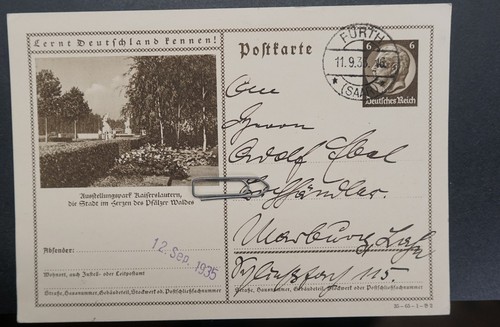 Lernt Deutschland kennen!
Ausstellungspark Kaiserslautern,
die Stadt im Herzen des Pfälzer Waldes
Absender:
12. Sep. 1935
Wohnort, auch Zustell- oder Leitpostamt
Straße, Hausnummer, Gebäudeteil, Stockwerk od. Postschließfachnummer
Postkarte
FÜRTH
11.9.35
(SAAR)
6 6
Deutsches Reich
Herrn
Adolf Ebel
Marburg Lahn
115.
Straße, Hausnummer, Gebäudeteil, Stockwerk oder Postschließfachnummer